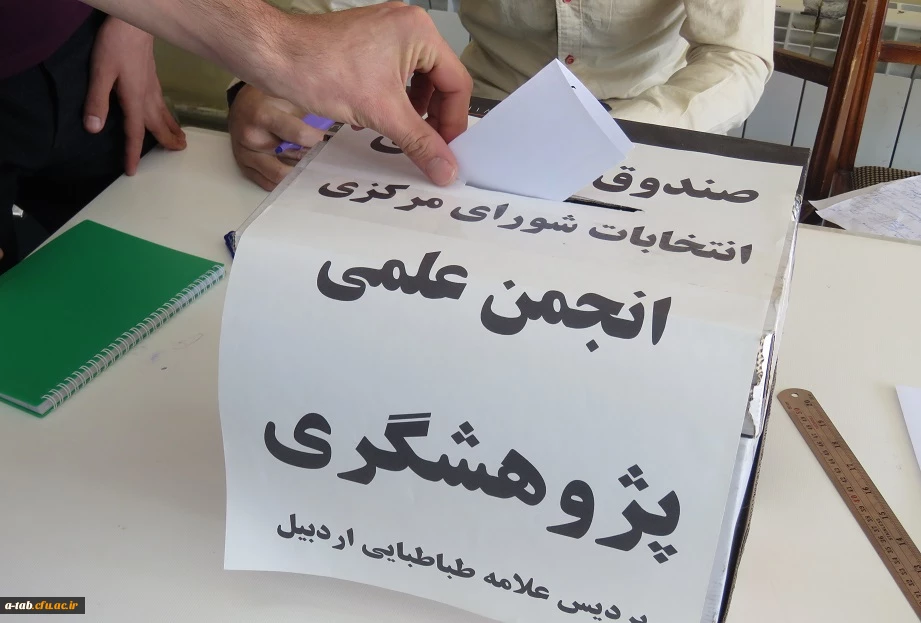 صندوق
انتخابات شورای مرکزی
انجمن علمی
پژوهشگری
پردیس علامه طباطبایی اردبیل
a-tab.cfu.ac.ir